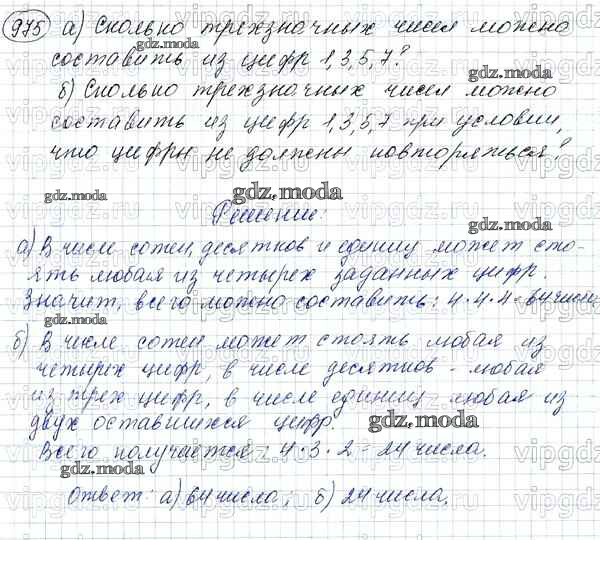 975 а) Сколько трехзначных чисел можно
составить из цифр 1,3,5,7?
б) Сколько трехзначных чисел можно
составить из цифр 1,3,5,7 при условии,
что цифры не должны повторяться?
Решение:
а) В числе сотен, десятков и единиц может сто-
ять любая из четырех заданных цифр.
Значит, всего можно составить: 4·4·4=64 числа
б) В числе сотен может стоять любая из
четырех цифр, в числе десятков - любая
из трех цифр, в числе единиц любая из
двух оставшихся цифр.
Всего получается: 4·3·2=24 числа.
Ответ: а) 64 числа; б) 24 числа.
gdz.moda
gdz.moda
gdz.moda
gdz.moda
gdz.moda
gdz.moda
gdz.moda
gdz.moda
gdz.moda
vipgdz.ru